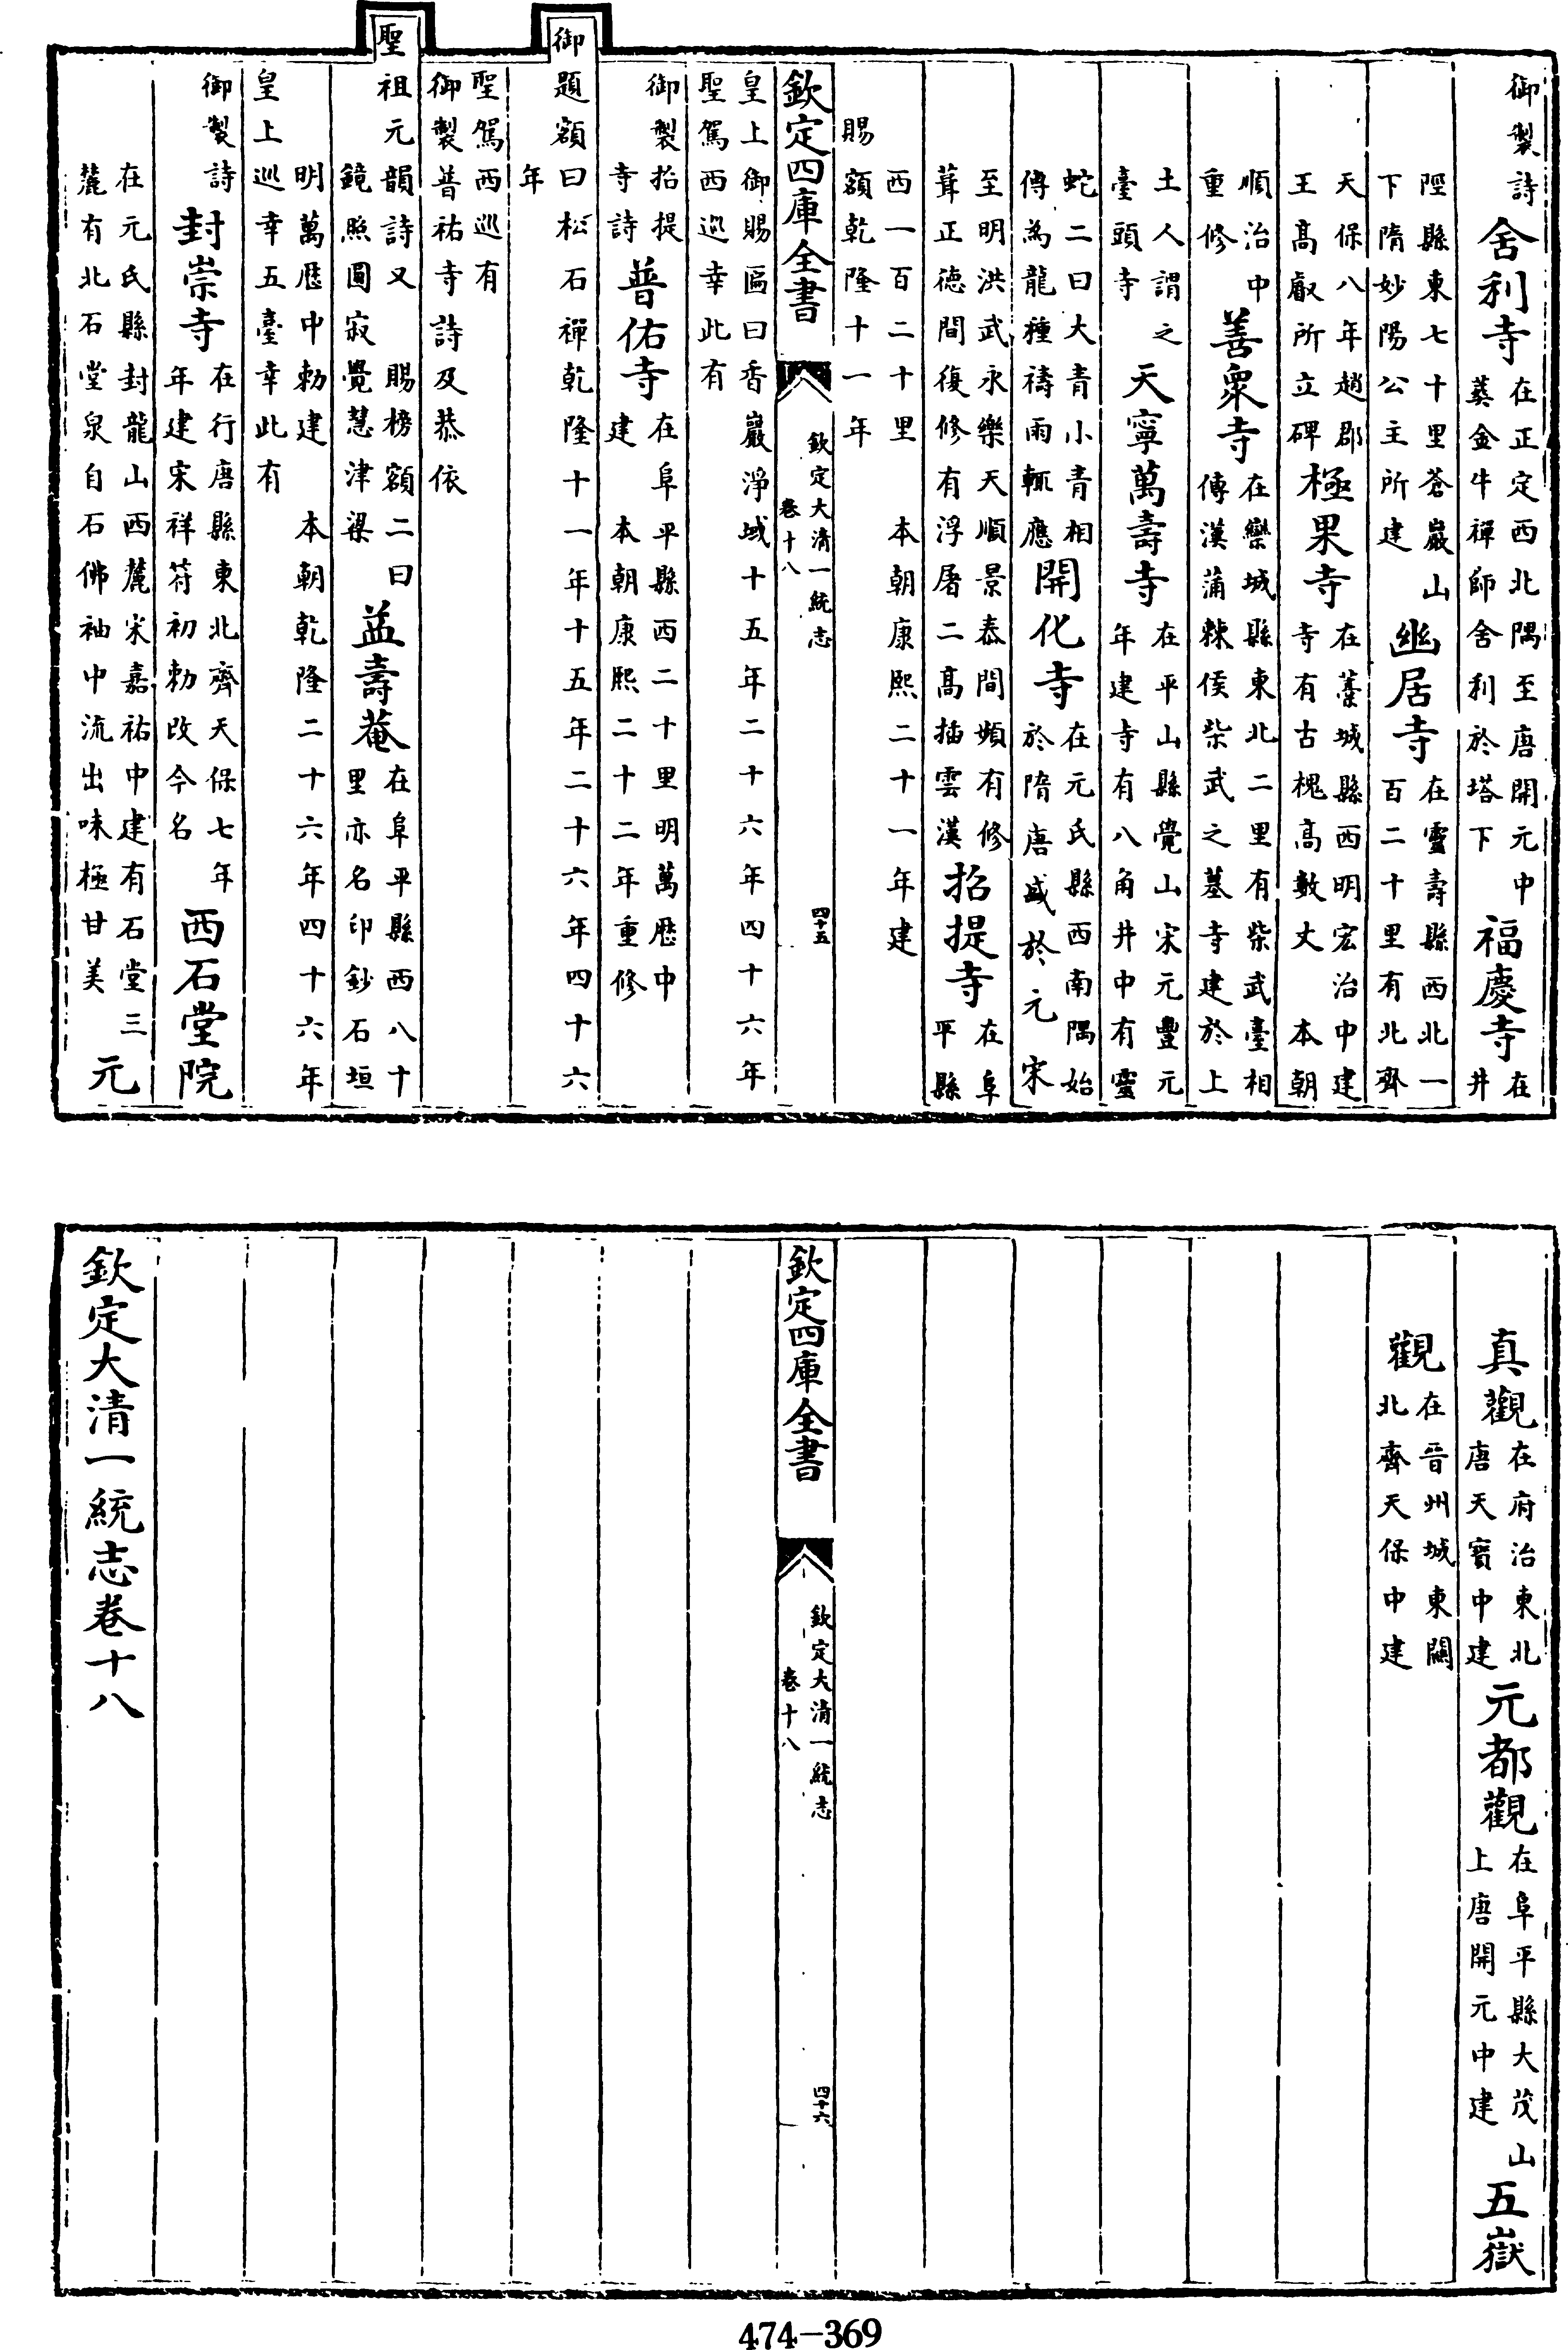 御製詩舍利寺在正定西北隅至唐開元中葬金牛禪師舍利於塔下福慶寺在井
陘縣東七十里蒼巖山下隋妙陽公主所建幽居寺在靈壽縣西北一百二十里有北齊
天保八年趙郡王高叡所立碑極果寺在藁城縣西明宏治中建寺有古槐高數丈 本朝
順治中重修善衆寺在欒城縣東北二里有柴武臺相傳漢蒲棘侯柴武之墓寺建於上
土人謂之臺頭寺天寧萬壽寺在平山縣覺山宋元豐元年建寺有八角井中有靈
蛇二曰大青小青相傳為龍種禱雨輒應開化寺在元氏縣西南隅始於隋唐盛於元宋
至明洪武永樂天順景泰間頻有修葺正德間復修有浮屠二高插雲漢招提寺在阜平縣
西一百二十里 本朝康熙二十一年建
賜額乾隆十一年
欽定四庫全書 欽定大清一統志 卷十八 四十五
皇上御賜匾曰香巖淨域十五年二十六年四十六年
聖駕西巡幸此有
御製招提寺詩普佑寺在阜平縣西二十里明萬歷中建 本朝康熙二十二年重修
御題額曰松石禪乾隆十一年十五年二十六年四十六年
聖駕西巡有
御製普祐寺詩及恭依
聖祖元韻詩又 賜榜額二曰鏡照圓寂覺慧津梁益壽菴在阜平縣西八十里亦名印鈔石垣
明萬歷中勅建 本朝乾隆二十六年四十六年
皇上巡幸五臺幸此有
御製詩封崇寺在行唐縣東北齊天保七年年建宋祥符初勅改今名西石堂院
在元氏縣封龍山西麓宋嘉祐中建有石堂三麓有北石堂泉自石佛袖中流出味極甘美元
真觀在府治東北唐天寶中建元都觀在阜平縣大茂山上唐開元中建五嶽
觀在晉州城東關北齊天保中建
欽定四庫全書 欽定大清一統志 卷十八 四十六
欽定大清一統志卷十八
474-369